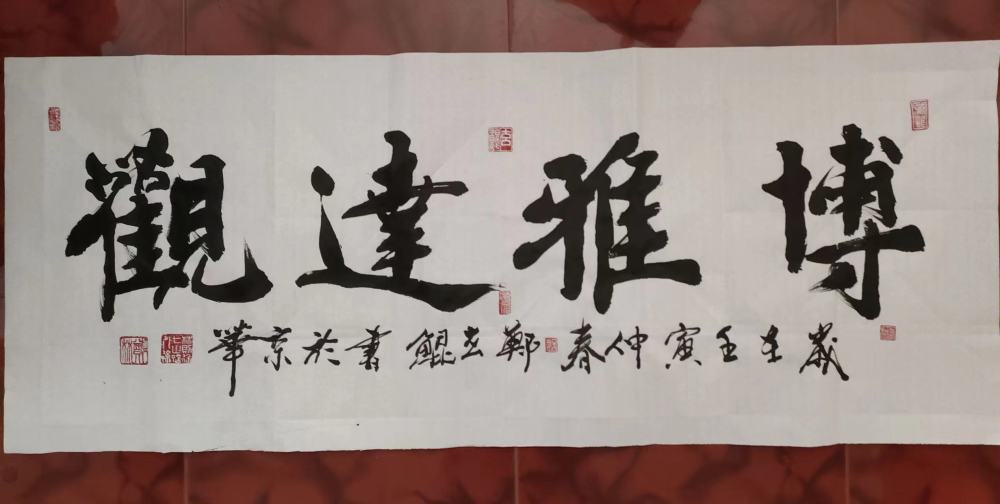 博雅達觀
歲在壬寅仲春鄭志鯤書於京華